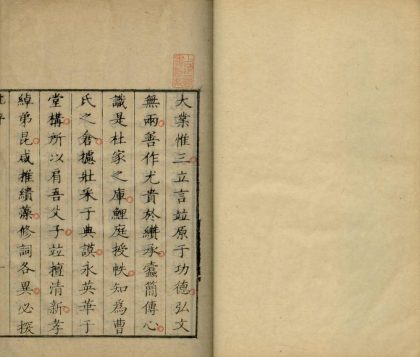 大業惟三立言竝原于功德弘文
無兩善作尤貴於纘承蠹簡傳心
識是杜家之庫鯉庭授帙知為曹
氏之倉攄壯采于典謨永英華于
堂構所以肩吾父子竝擅清新孝
綽弟昆咸推繢藻修詞各異必探